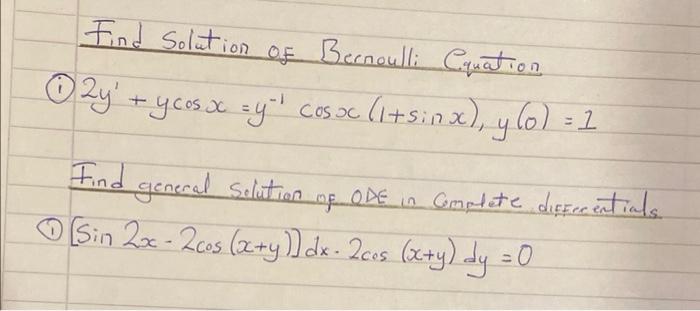 Find Solution of Bernoulli Equation
① 2y' + y cos x = y⁻¹ cos x (1 + sin x), y(0) = 1
Find general Solution of ODE in Complete differentials
① [Sin 2x - 2cos (x+y)] dx - 2cos (x+y) dy = 0